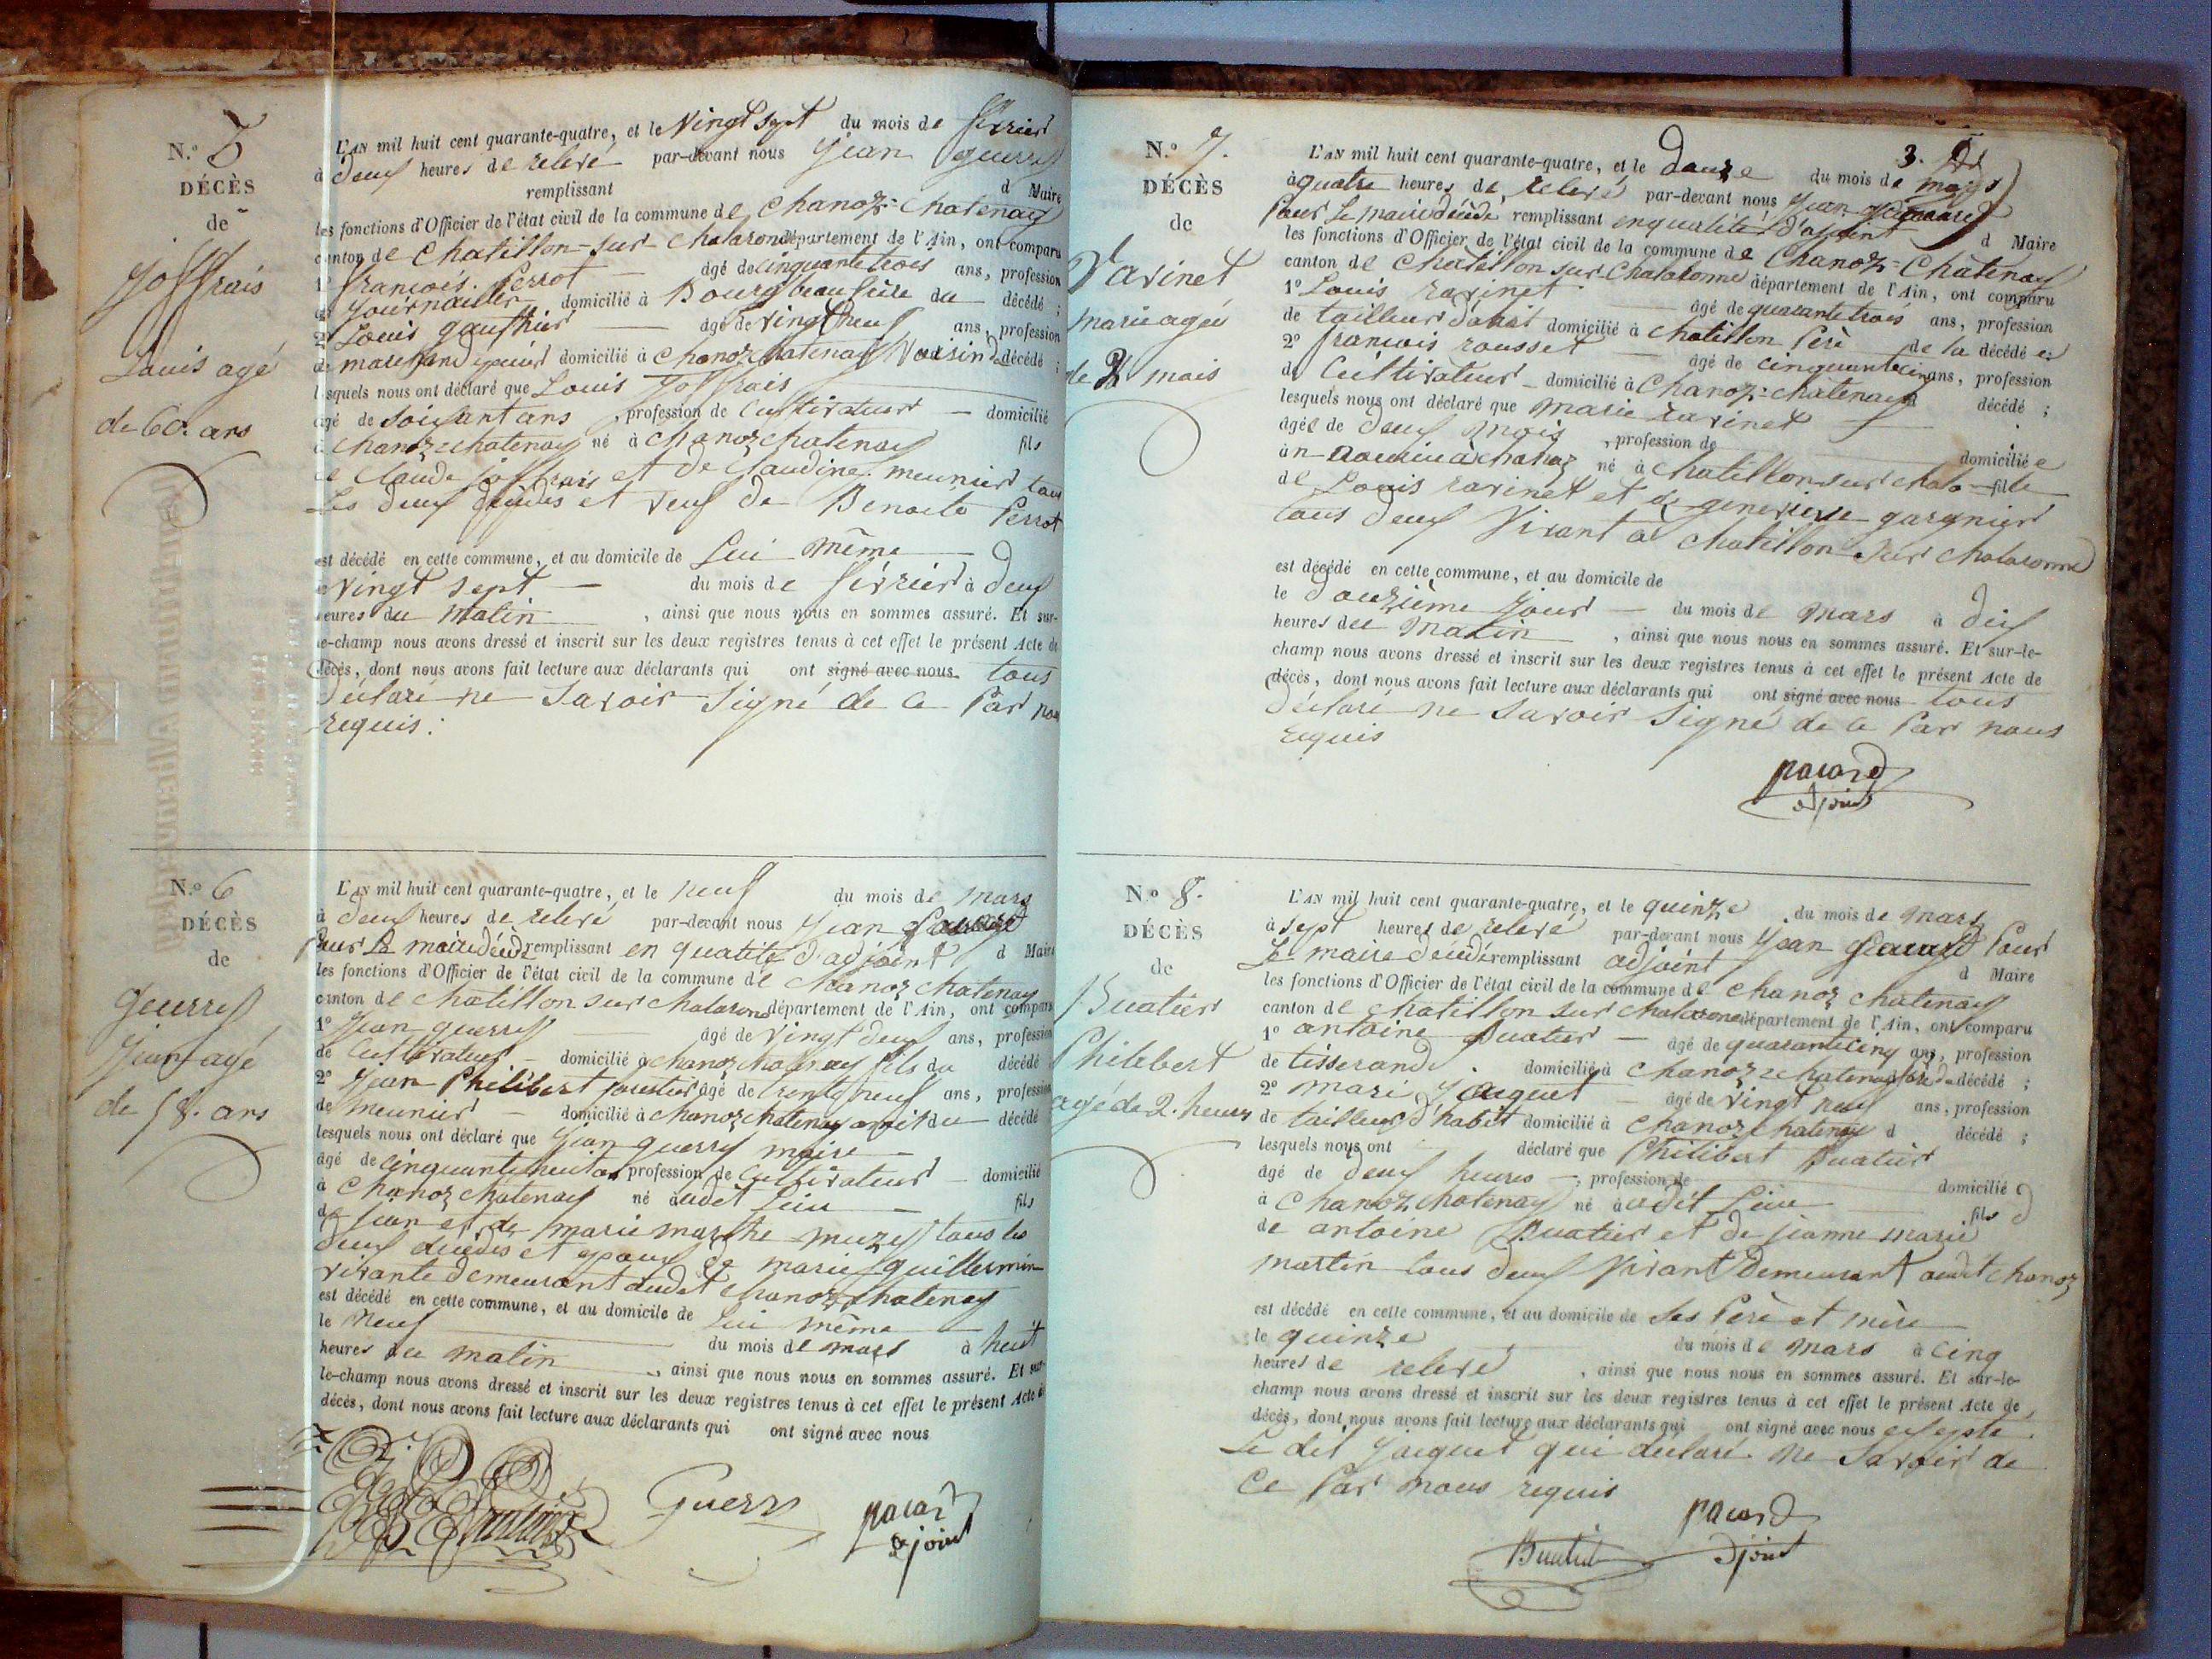 N.º 5
DÉCÈS
de
Joffrais
Louis agé
de 60. ans
L'AN mil huit cent quarante-quatre, et le Vingt sept du mois de fevrier
à deux heures de relevé par-devant nous jean guerry
remplissant d Maire
les fonctions d'Officier de l'état civil de la commune de Chanoz-Chatenay
canton de Chatillon-sur-Chalaronne département de l'Ain, ont comparu
1º françois Perrot âgé de cinquante trois ans, profession
de journailier domicilié à Bourg beau frère du décédé ;
2º Louis gauthier âgé de Vingt neuf ans, profession
de marchand epicier domicilié à Chanoz Chatenay Voisin du décédé ;
lesquels nous ont déclaré que Louis Joffrais
âgé de Soixant ans , profession de Cultivateur domicilié
à Chanoz-Chatenay né à Chanoz Chatenay fils
de Claude joffrais et de Claudine meunier tous
Les deux décédés et veuf de Benoite Perrot
est décédé en cette commune, et au domicile de Lui même
le Vingt sept du mois de février à deux
heures du matin , ainsi que nous nous en sommes assuré. Et sur-
le-champ nous avons dressé et inscrit sur les deux registres tenus à cet effet le présent Acte de
décès, dont nous avons fait lecture aux déclarants qui ont signé avec nous tous
déclaré ne Savoir Signé de ce Par nous
requis.
N.º 6
DÉCÈS
de
Guerry
Jean agé
de 58. ans
L'AN mil huit cent quarante-quatre, et le neuf du mois de mars
à deux heures de relevé par-devant nous jean Pacard
Pour Le maire décédé remplissant en qualité d'adjoint d Maire
les fonctions d'Officier de l'état civil de la commune de Chanoz Chatenay
canton de Chatillon sur Chalaronne département de l'Ain, ont comparu
1º Jean guerry âgé de Vingt deux ans, profession
de Cultivateur domicilié à Chanoz Chatenay fils du décédé
2º Jean Philibert âgé de trente neuf ans, profession
de meunier domicilié à Chanoz Chatenay amit du décédé
lesquels nous ont déclaré que Jean guerry maire
âgé de cinquante huit ans profession de Cultivateur domicilié
à Chanoz Chatenay né audit Lieu fils
de jean et de marie marthe muzy tous les
deux décédés et epoux de marie guillermin
vivante demeurant audit Chanoz Chatenay
est décédé en cette commune, et au domicile de Lui même
le Neuf du mois de mars à huit
heures du matin , ainsi que nous nous en sommes assuré. Et sur-
le-champ nous avons dressé et inscrit sur les deux registres tenus à cet effet le présent Acte de
décès, dont nous avons fait lecture aux déclarants qui ont signé avec nous
Guerry pacard
adjoint
3.
N.º 7.
DÉCÈS
de
Ravinet
marie agée
de 2 mois
L'AN mil huit cent quarante-quatre, et le douze du mois de mars
à quatre heures de relevé par-devant nous Jean Pacard
Pour Le maire décédé remplissant en qualité d'adjoint d Maire
les fonctions d'Officier de l'état civil de la commune de Chanoz-Châtenay
canton de Chatillon sur Chalaronne département de l'Ain, ont comparu
1º Louis ravinet âgé de quarante trois ans, profession
de tailleur d'abit domicilié à Chatillon Père de la décédé e;
2º françois rousset âgé de cinquante cinq ans, profession
de Cultivateur domicilié à Chanoz-Châtenay d décédé ;
lesquels nous ont déclaré que marie ravinet
âgée de deux mois , profession de domicilié e
à né à Chatillon sur Chala fille
de Louis ravinet et de genevieve gargnier
tous deux Vivant à Chatillon Sur Chalaronne
est décédé en cette commune, et au domicile de
le douzième jour du mois de mars à dix
heures du Matin , ainsi que nous nous en sommes assuré. Et sur-le-
champ nous avons dressé et inscrit sur les deux registres tenus à cet effet le présent Acte de
décès, dont nous avons fait lecture aux déclarants qui ont signé avec nous tous
déclaré ne Savoir Signé de ce Par nous
requis
pacard
adjoint
N.º 8.
DÉCÈS
de
Buatier
Philibert
agé de 2. heures
L'AN mil huit cent quarante-quatre, et le quinze du mois de mars
à sept heures de relevé par-devant nous Jean Pacard Pour
Le maire décédé remplissant adjoint d Maire
les fonctions d'Officier de l'état civil de la commune de Chanoz Chatenay
canton de Chatillon sur Chalaronne département de l'Ain, ont comparu
1º antoine Buatier âgé de quarante cinq ans, profession
de tisserand domicilié à Chanoz Chatenay père du décédé ;
2º mari Jaiquet âgé de Vingt neuf ans, profession
de tailleur d'habit domicilié à Chanoz Chatenay d décédé ;
lesquels nous ont déclaré que Philibert Buatier
âgé de deux heures , profession de domicilié
à Chanoz Chatenay né audit Lieu fils
de antoine Buatier et de jeanne marie
martin tous deux Vivant Demeurant audit Chanoz
est décédé en cette commune, et au domicile de Ses Père et mère
le quinze du mois de mars à cinq
heures de relevé , ainsi que nous nous en sommes assuré. Et sur-le-
champ nous avons dressé et inscrit sur les deux registres tenus à cet effet le présent Acte de
décès, dont nous avons fait lecture aux déclarants qui ont signé avec nous excepté
Le dit Jaiquet qui déclaré ne Savoir de
Ce Par nous requis
pacard
Buatier adjoint